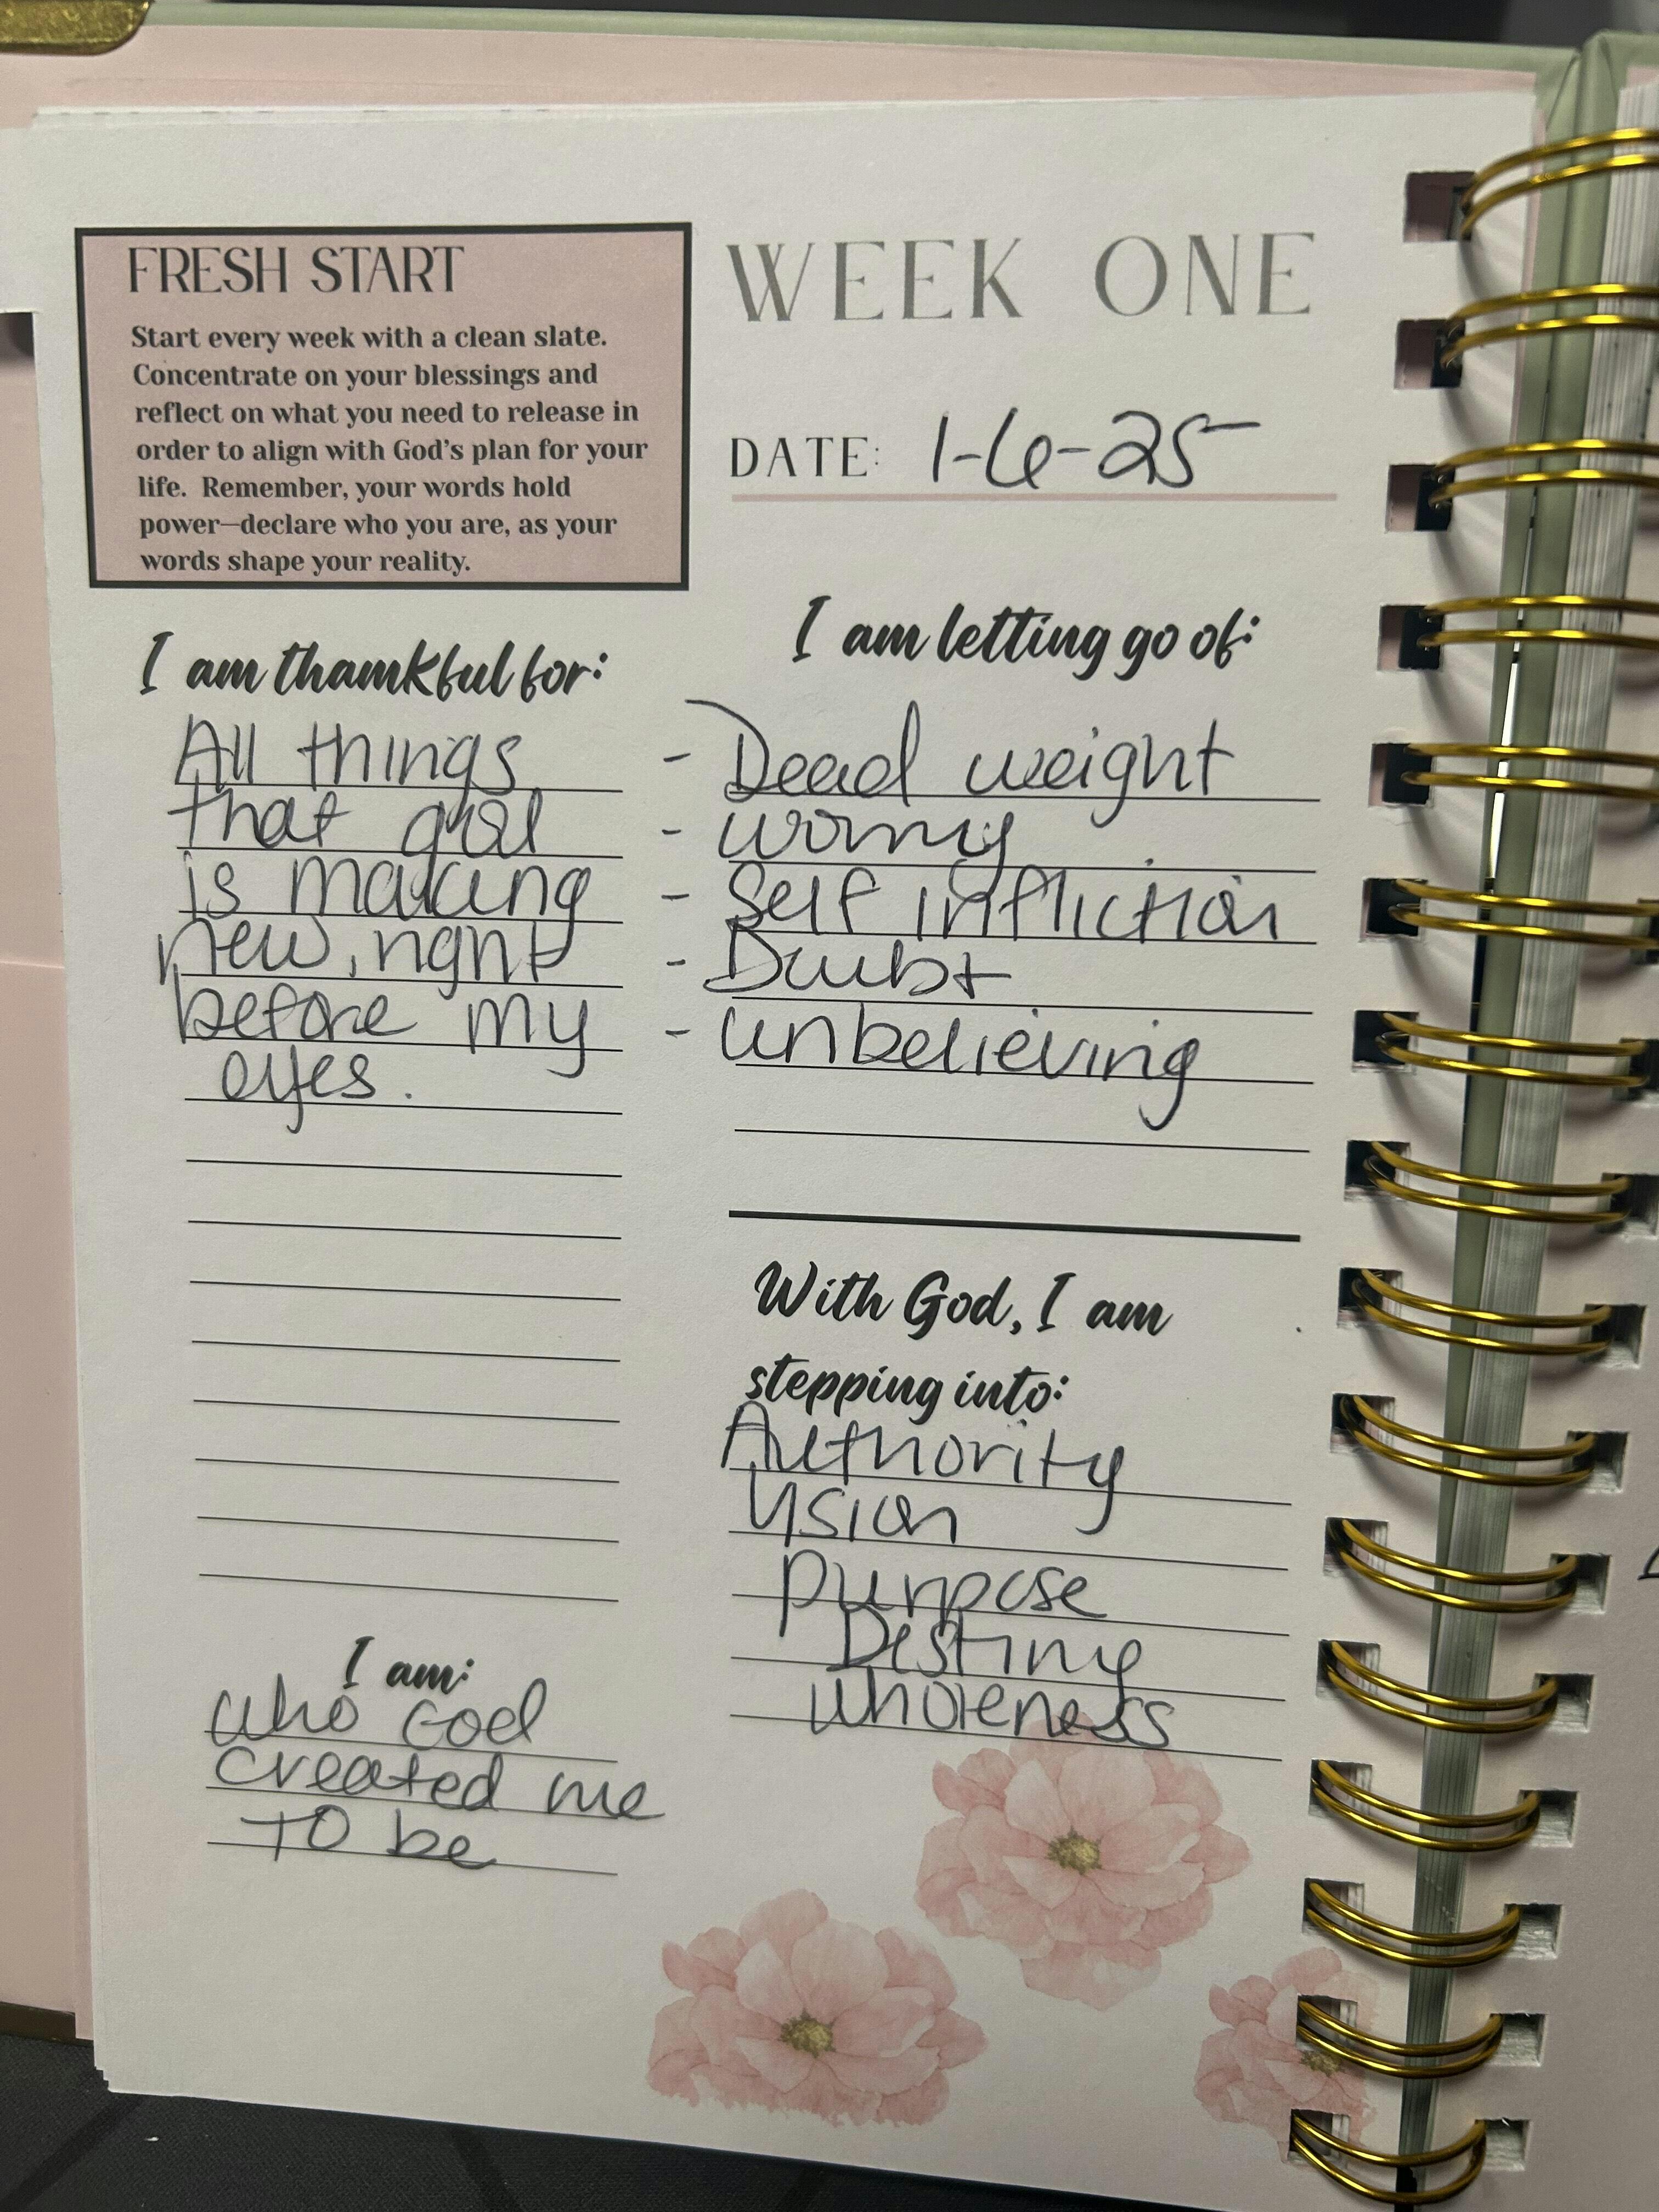 FRESH START
Start every week with a clean slate.
Concentrate on your blessings and
reflect on what you need to release in
order to align with God's plan for your
life. Remember, your words hold
power—declare who you are, as your
words shape your reality.
WEEK ONE
DATE: 1-6-25
I am thankful for:
All things
that god
is making
new, right
before my
eyes.
I am letting go of:
- Dead weight
- worry
- Self infliction
- Doubt
- unbelieving
With God, I am
stepping into:
Authority
Vision
purpose
Destiny
wholeness
I am:
who God
created me
TO be